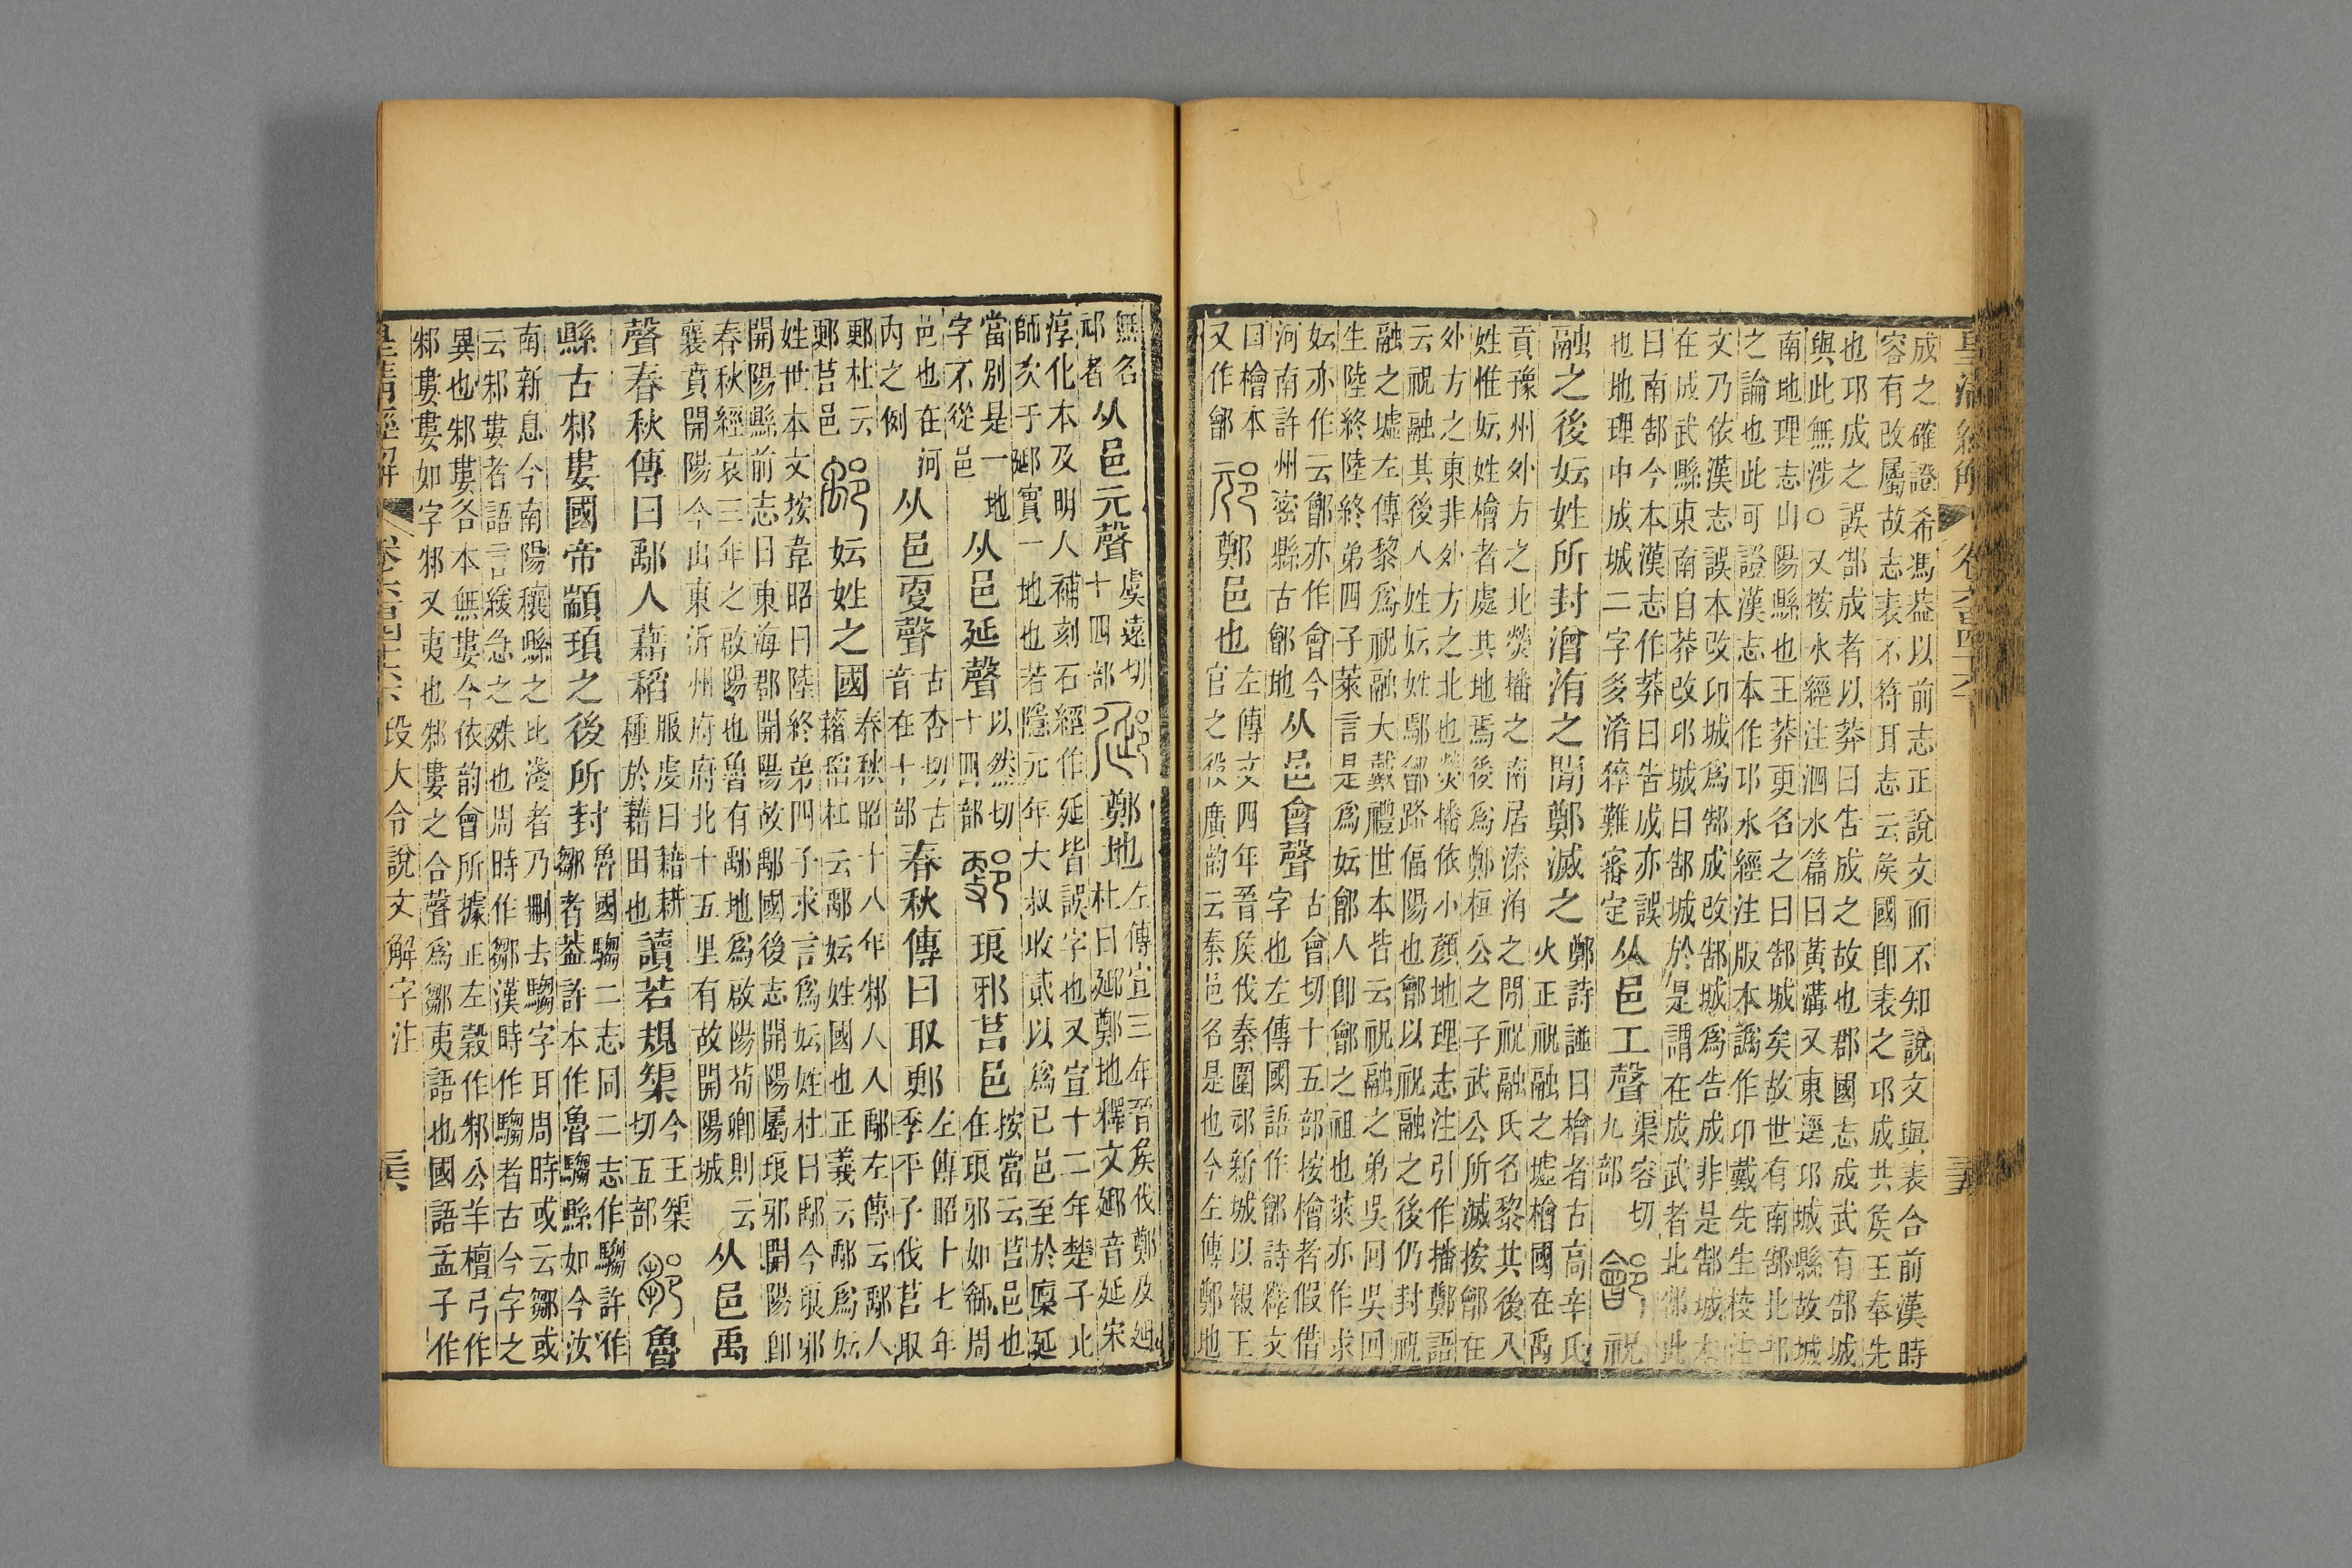 皇清經解 卷六百四十六
成之確證希馮葢以前志正說文而不知說文與表合前漢時
容有改屬故志表不符耳志云矦國卽表之邛成共矦王奉先
也邛成之誤郜成者以莽曰告成之故也郡國志成武有郜城
與此無涉○又按水經注泗水篇曰黃溝又東逕邛城縣故城
南地理志山陽縣也王莽更名之曰郜城矣故世有南郜北郜
之論也此可證漢志本作邛水經注版本譌作卬戴先生校注
文乃依漢志誤本改卬城爲郜成改郜城爲告成非是郜城本
在成武縣東南自莽改邛城曰郜城於是謂在成武者北郜此
曰南郜今本漢志作莽曰告成亦誤
也地理中成城二字多淆猝難審定
从邑工聲
渠容切
九部
鄶祝
融之後妘姓所封澮洧之閒鄭滅之
鄭詩譜曰檜者古高辛氏
火正祝融之墟檜國在禹
貢豫州外方之北熒播之南居溱洧之閒祝融氏名黎其後八
姓惟妘姓檜者處其地焉後爲鄭桓公之子武公所滅按鄶在
外方之東非外方之北也熒播依小顏地理志注引作播鄭語
云祝融其後八姓妘姓鄢鄶路偪陽也鄶以祝融之後仍封祝
融之墟左傳黎爲祝融大戴禮世本皆云祝融之弟吳回吳回
生陸終陸終弟四子萊言是爲妘鄶人卽鄶之祖也萊亦作求
妘亦作云鄶亦作會今
河南許州密縣古鄶地
从邑會聲
古會切十五部按檜者假借
字也左傳國語作鄶詩釋文
曰檜本
又作鄶
邧鄭邑也
左傳文四年晉矦伐秦圍邧新城以報王
官之役廣韵云秦邑名是也今左傳鄭地
無名
邧者
从邑元聲
虞遠切
十四部
郔鄭地
左傳宣三年晉矦伐鄭及郔
杜曰郔鄭地釋文郔音延宋
淳化本及明人補刻石經作延皆誤字也又宣十二年楚子北
師次于郔實一地也若隱元年大叔收貳以爲己邑至於廩延
當別是一地
字不從邑
从邑延聲
以然切
十四部
郠琅邪莒邑
按當云莒邑也
在琅邪如郗周
邑也在河
內之例
从邑㪅聲
古杏切古
音在十部
春秋傳曰取郠
左傳昭十七年
季平子伐莒取
郠杜云
郠莒邑
鄅妘姓之國
春秋昭十八年邾人入鄅左傳云鄅人
藉稻杜云鄅妘姓國也正義云鄅爲妘
姓世本文按韋昭曰陸終弟四子求言爲妘姓杜曰鄅今琅邪
開陽縣前志曰東海郡開陽故鄅國後志開陽屬琅邪開陽卽
春秋經哀三年之啟陽也魯有鄅地爲啟陽荀卿則云
襄賁開陽今山東沂州府府北十五里有故開陽城
从邑禹
聲春秋傳曰鄅人藉稻
服虔曰藉耕
種於藉田也
讀若規榘
今王榘
切五部
鄒魯
縣古邾婁國帝顓頊之後所封
魯國騶二志同二志作騶許作
鄒者葢許本作魯騶縣如今汝
南新息今南陽穰縣之比淺者乃刪去騶字耳周時或云鄒或
云邾婁者語言緩急之殊也周時作鄒漢時作騶者古今字之
異也邾婁各本無婁今依韵會所據正左穀作邾公羊檀弓作
邾婁婁如字邾又夷也邾婁之合聲爲鄒夷語也國語孟子作
皇清經解 卷六百四十六 段大令說文解字注